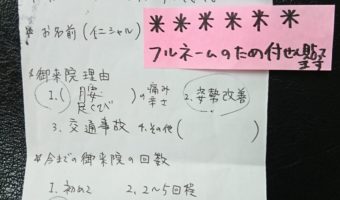 ※お名前(イニシャル)
米米米米米米
フルネームのため付せん貼って
ます
※御来院理由
1.(腰 足くび)の痛み 辛さ 2.姿勢改善
3.交通事故 4.その他( )
※今までの御来院の回数
1.初めて 2.2〜5回程